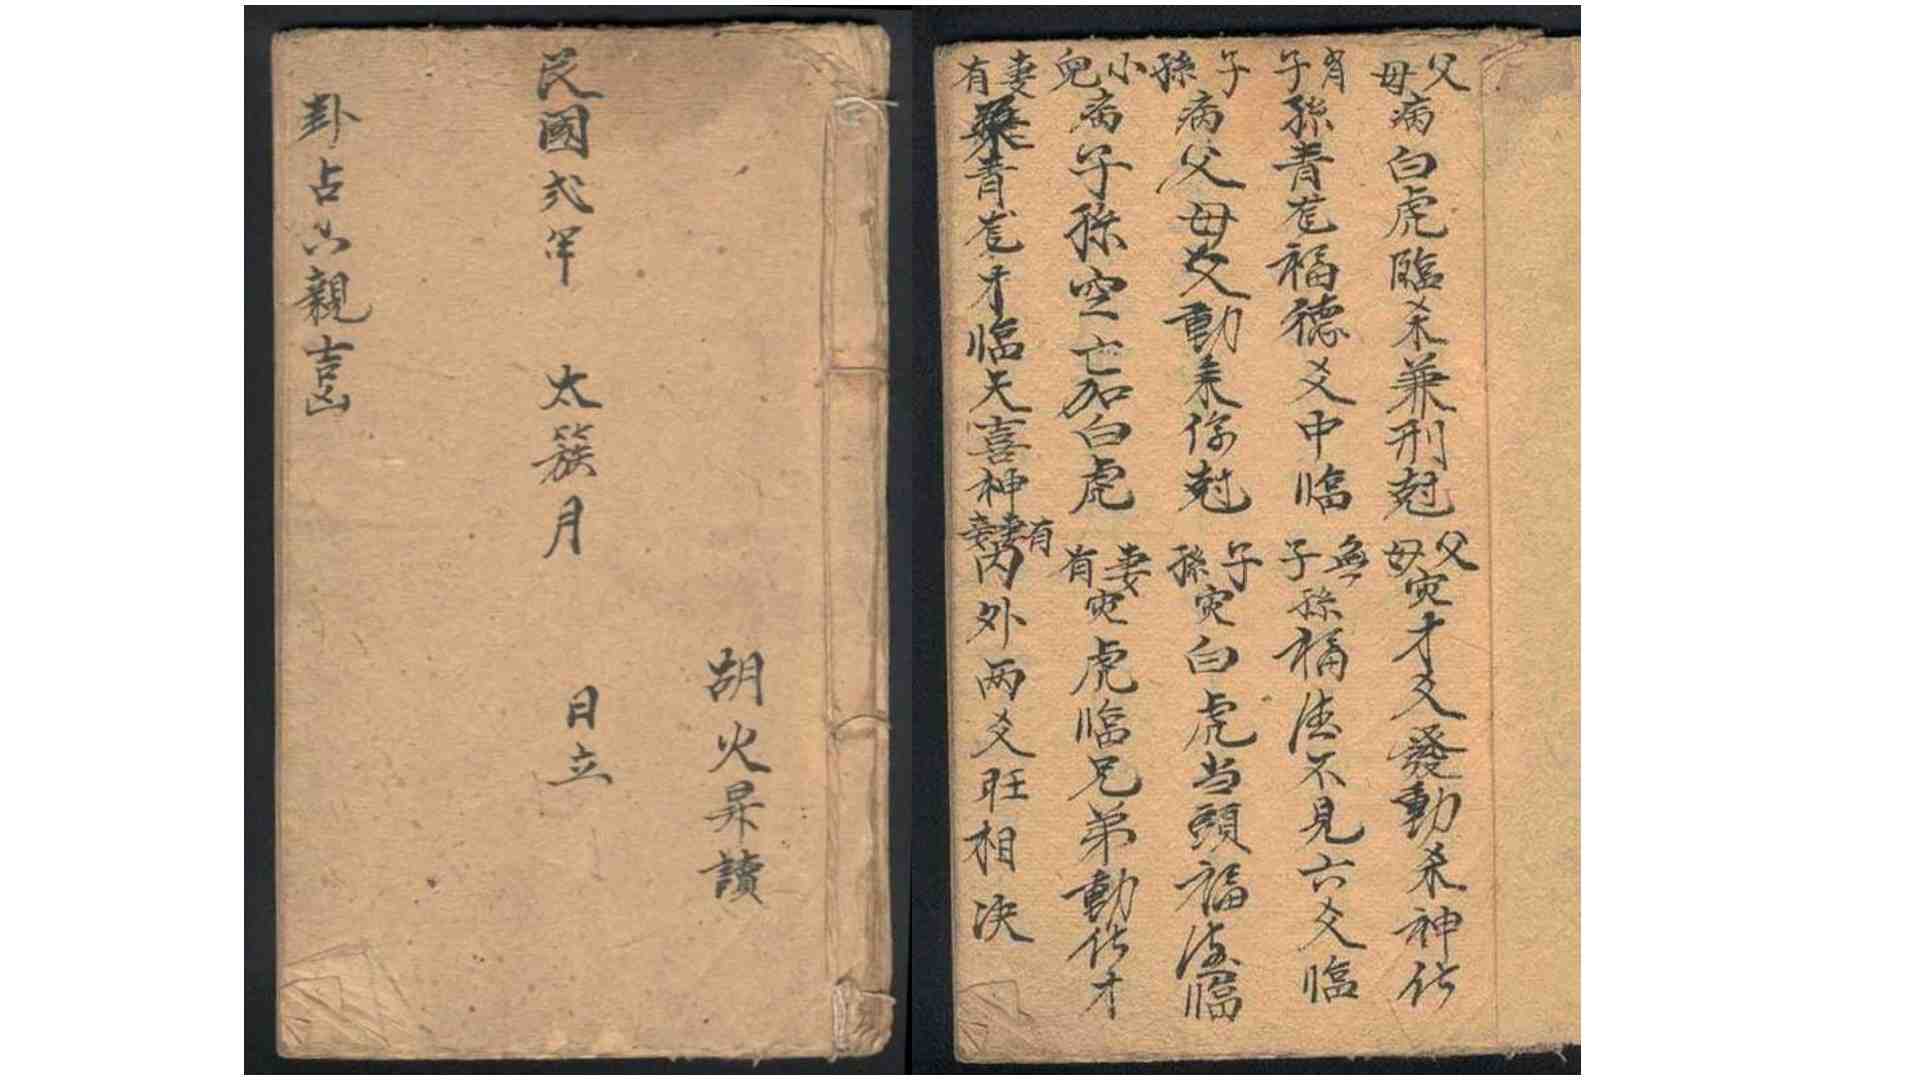 民國弍年 太簇月 日立
胡火昇讀
卦占六親吉凶
父母病白虎臨杀兼刑尅
父母灾才爻發動杀神化
有子孫青龙福德爻中臨
無子孫福德不見六爻臨
子孫病父母爻動来傷尅
子孫灾白虎当頭福德臨
小兒病子孫空亡加白虎
妻有灾虎臨兄弟動化才
妻有 青龙才临天喜神
有妻妾内外两爻旺相决